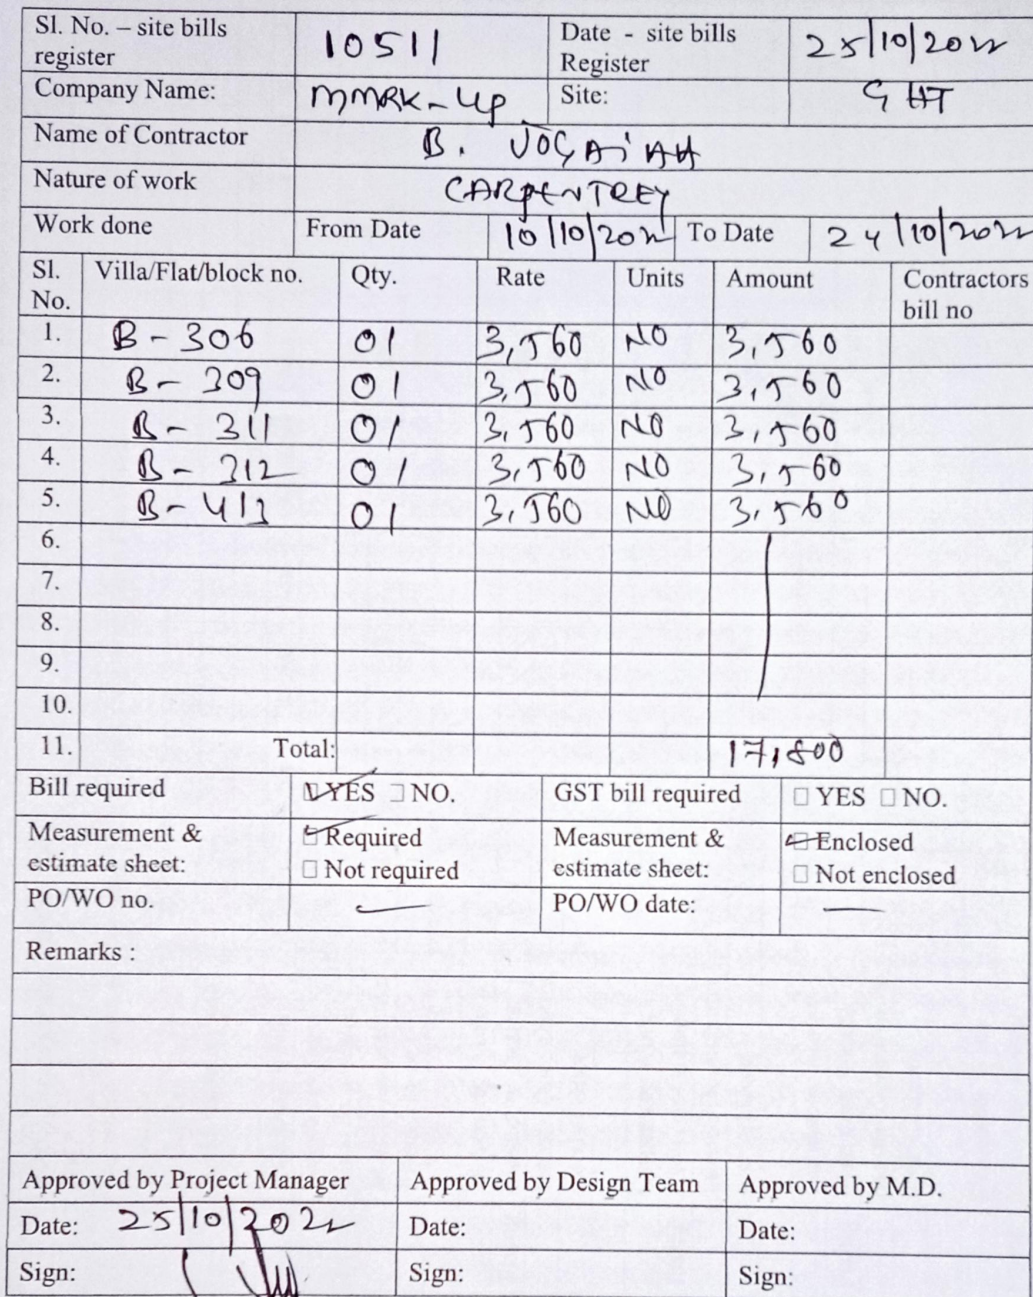 Sl. No. – site bills register 10511 Date - site bills Register 25/10/2022
Company Name: MMRK-Up Site: GHT
Name of Contractor B. JOGAIAH
Nature of work CARPENTREY
Work done From Date 10/10/2022 To Date 24/10/2022
Sl. No. Villa/Flat/block no. Qty. Rate Units Amount Contractors bill no
1. B - 306 01 3,560 NO 3,560
2. B - 309 01 3,560 NO 3,560
3. B - 311 01 3,560 NO 3,560
4. B - 312 01 3,560 NO 3,560
5. B - 413 01 3,560 NO 3,560
6.
7.
8.
9.
10.
11. Total: 17,800
Bill required ☑ YES ☐ NO. GST bill required ☐ YES ☐ NO.
Measurement & estimate sheet: ☑ Required ☐ Not required Measurement & estimate sheet: ☑ Enclosed ☐ Not enclosed
PO/WO no. — PO/WO date: —
Remarks :
Approved by Project Manager Approved by Design Team Approved by M.D.
Date: 25/10/2022 Date: Date:
Sign: Sign: Sign: